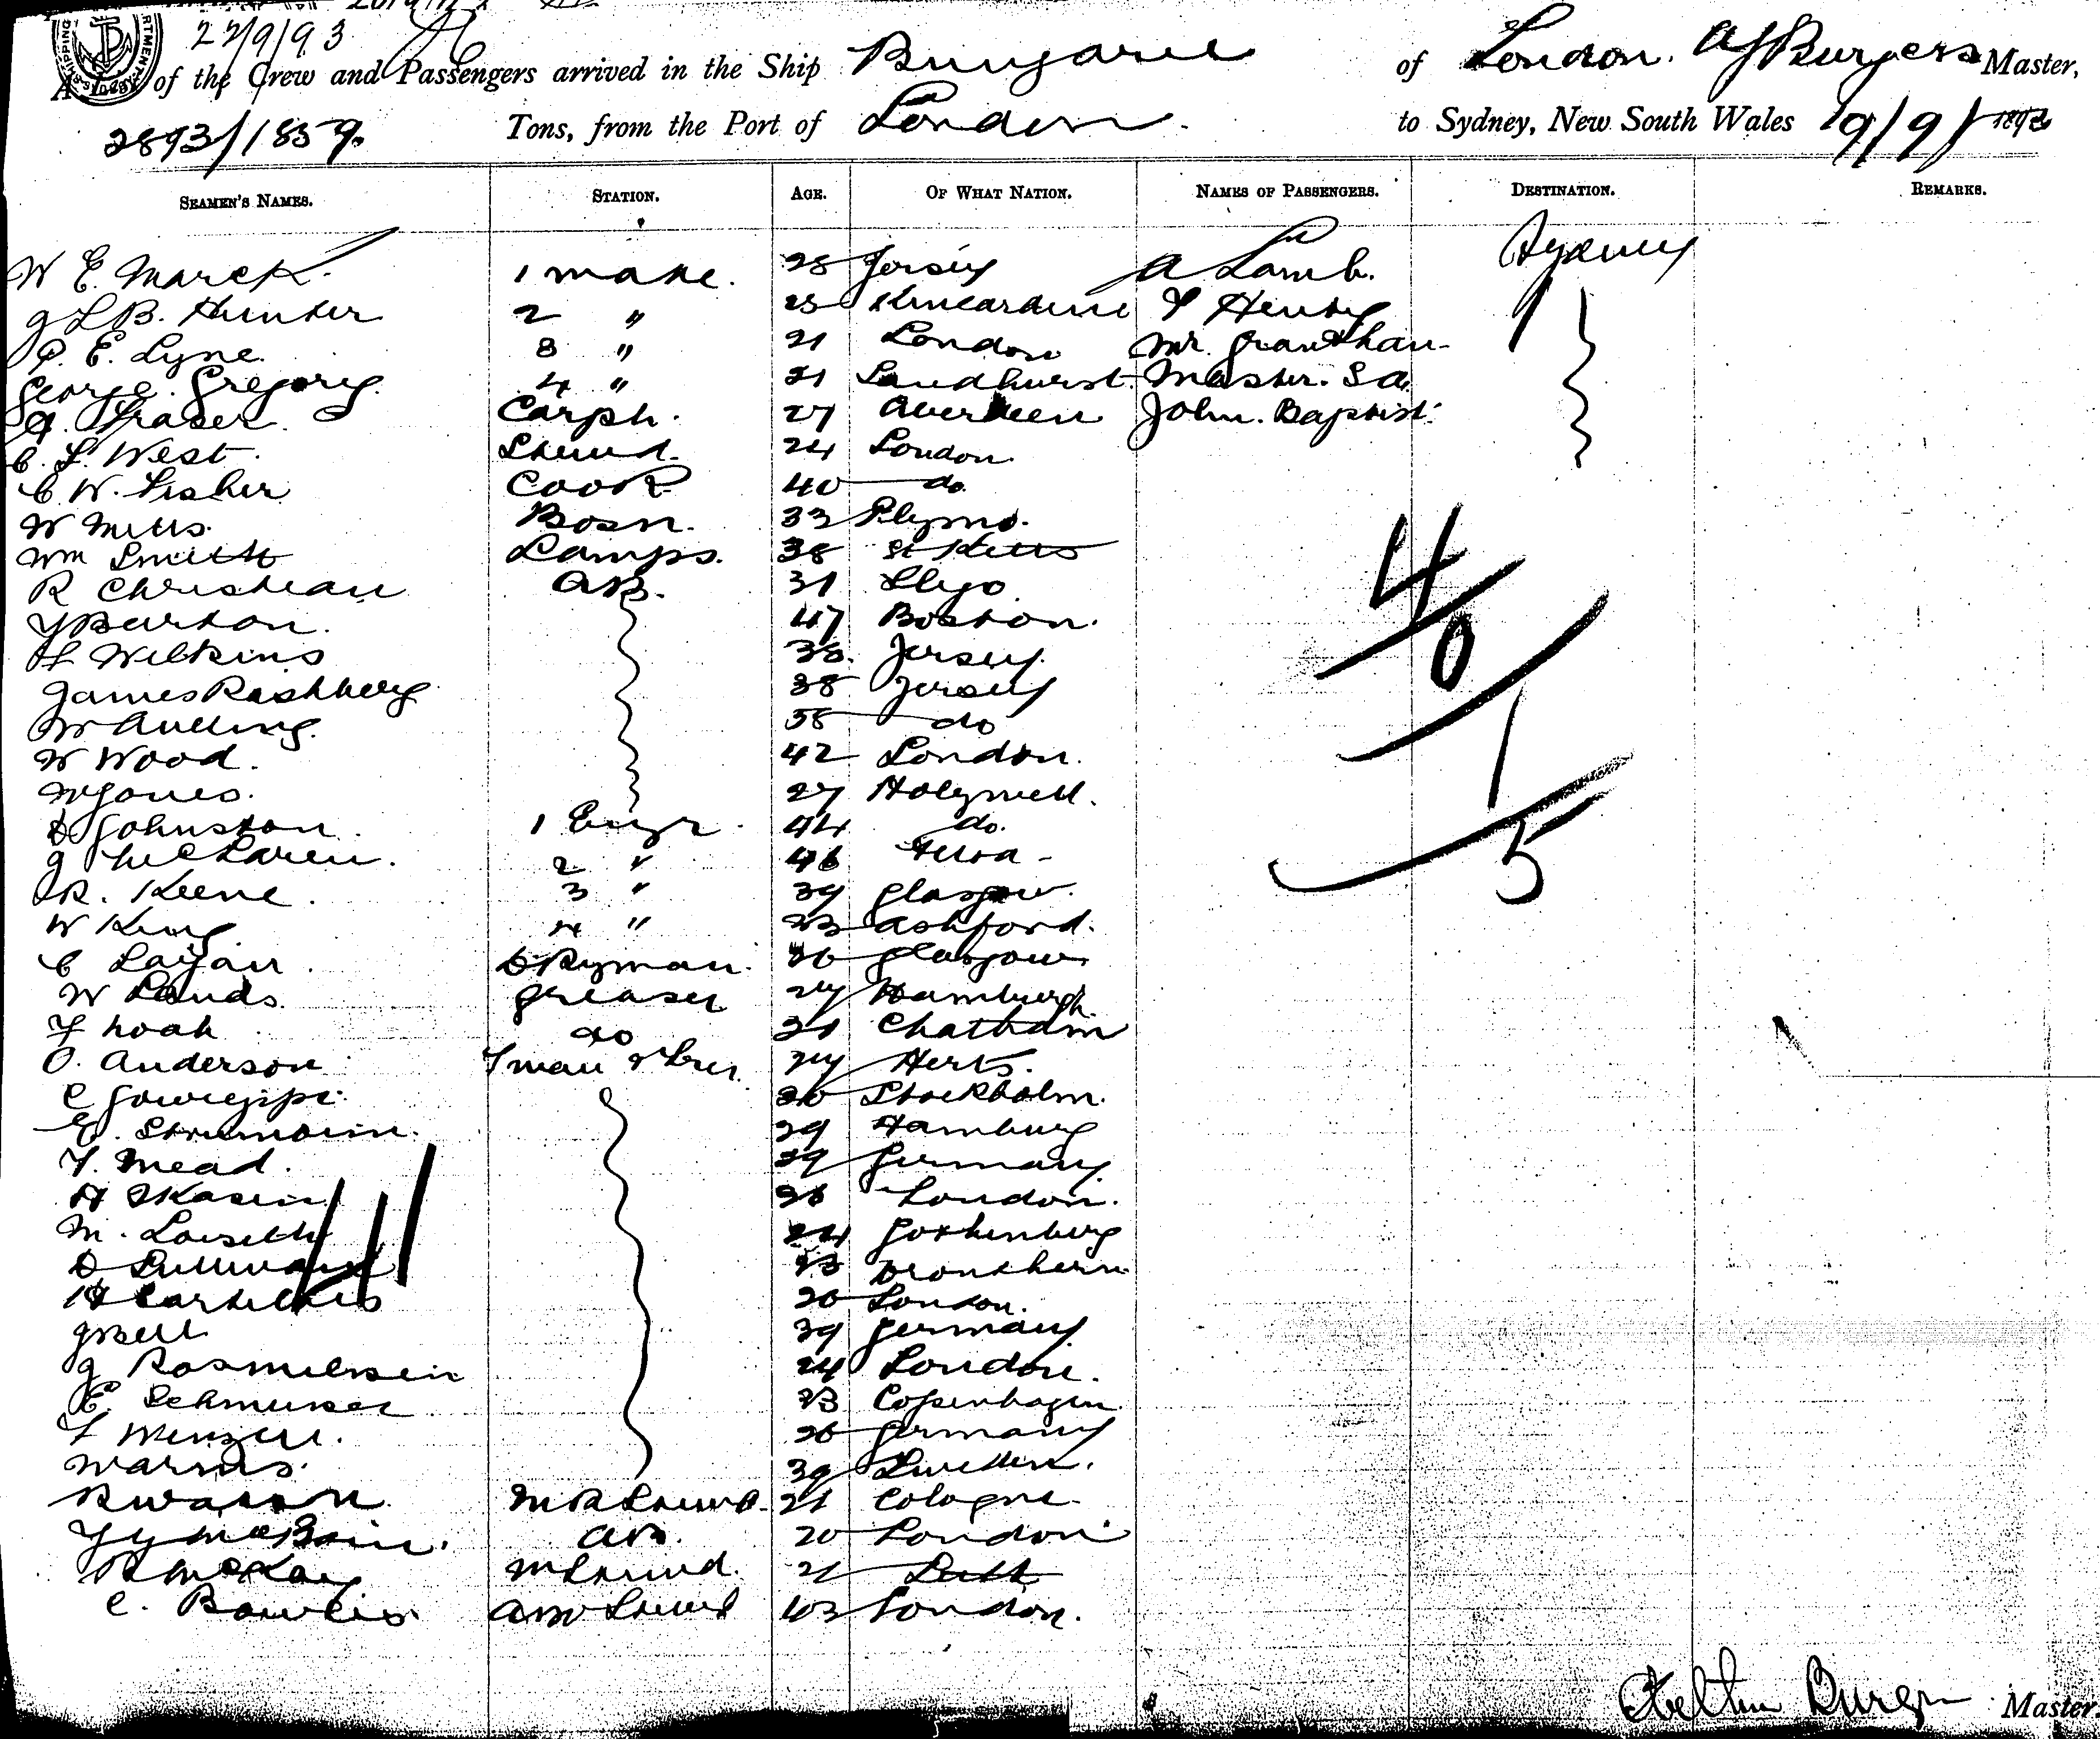 22/9/93
A List of the Crew and Passengers arrived in the Ship Bungaree of London. A J Burgess Master,
2893/1859. Tons, from the Port of London. to Sydney, New South Wales 19/9/1893
SEAMEN'S NAMES. STATION. AGE. OF WHAT NATION. NAMES OF PASSENGERS. DESTINATION. REMARKS.
W E. Marck. 1 mate. 28 Jersey A Lamb. Sydney
J L B. Hunter 2 " 25 Kincardine Henty
P. E. Lyne. 3 " 21 London Mr. Grantham
George Gregory. 4 " 21 Sandhurst. Master. Do
A. Fraser. Carptr. 27 Aberdeen John. Baptist.
C. L. West. Stewd. 24 London
C W. Fisher Cook 40 do.
W Mills. Bosn. 33 Plymo.
Wm Smith Lamps. 38 St Kitts
R Christian AB. 31 Sligo
J Burton. 47 Boston.
F Wilkins 38. Jersey.
James Rashberg 38 Jersey
W 58 do
W Wood. 42 London.
W Jones. 27 Holywell.
D Johnston. 1 Engr. 44 do.
J McLaren. 2 " 46
R. Keene. 3 " 39 Glasgow.
W King 4 " 23 Ashford.
C DKyman. 26 Glasgow
W Lands. Greaser 24 Hamburgh.
F Noah do 21 Chatham
O. Anderson Fman & Trer. 24 Herts.
C 26 Stockholm.
E. 29 Hamburg
F. Mead. 29 Germany
A 26 London.
M. 24 Gothenburg
D Sullivan 23 Drontheim
H 20 London.
J Bell 39 Germany
J Rasmussen 24 London.
E. 23 Copenhagen
F Menzell. 26 Germany
39 Sweden.
R Watson M R Steward. 21 Cologne
McBain. AB. 20 London
R McKay M Steward. 21 Leith
C. Bowles 43 London.
4
0
1
5
Burgess Master.